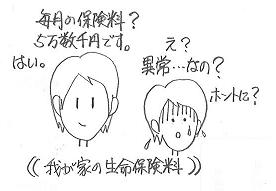 毎月の保険料？
5万数千円です。
はい。
え？
異常…なの？
ホントに？
((我が家の生命保険料))